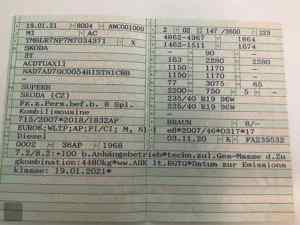 19.01.21 8004 AWC001009
M1 AC
X
SKODA
3T
SUPERB
SKODA (CZ)
Fz.z.Pers.bef.b. 8 Spl.
Kombilimousine
715/2007*2018/1832AP
EURO6;WLTP;AP;PI/CI; M, N1
Diesel
0002 36AP 1968
2 02 147 /3500 123
4862-4867 1864
1462-1511 1674
- 90 -
163 2280 2280
1150 1170 -
1150 1170 -
77 3075 65
2200 750 5 -
235/40 R19 96W
235/40 R19 96W
-
BRAUN 8/-
e8*2007/46*0317*17
03.11.20 K FA235532
7.2/8.2:+100 b.Anhängebetrieb*techn.zul.Ges-Masse d.Zu
gkombination:4480kg*ww.AHK lt.EGTG*Datum zur Emissions
klasse: 19.01.2021*